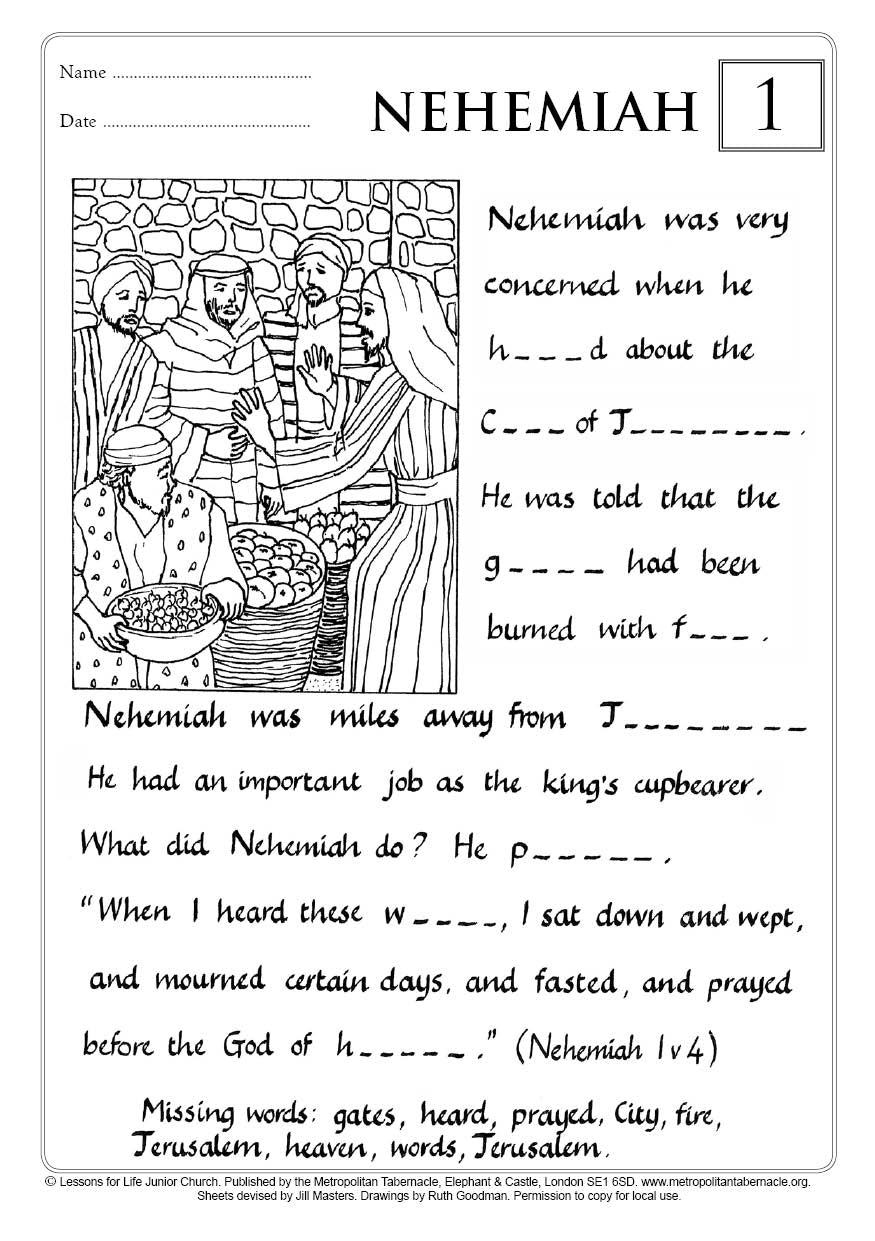 Name ...............................................
Date .................................................
NEHEMIAH
1
Nehemiah was very
concerned when he
h_ _ _d about the
C_ _ _ of J_ _ _ _ _ _ _ _ .
He was told that the
g_ _ _ _ had been
burned with f_ _ _ .
Nehemiah was miles away from J_ _ _ _ _ _ _ _
He had an important job as the king's cupbearer.
What did Nehemiah do? He p_ _ _ _ _ .
"When I heard these w_ _ _ _, I sat down and wept,
and mourned certain days, and fasted, and prayed
before the God of h_ _ _ _ _ ." (Nehemiah 1 v 4)
Missing words: gates, heard, prayed, City, fire,
Jerusalem, heaven, words, Jerusalem.
© Lessons for Life Junior Church. Published by the Metropolitan Tabernacle, Elephant & Castle, London SE1 6SD. www.metropolitantabernacle.org.
Sheets devised by Jill Masters. Drawings by Ruth Goodman. Permission to copy for local use.